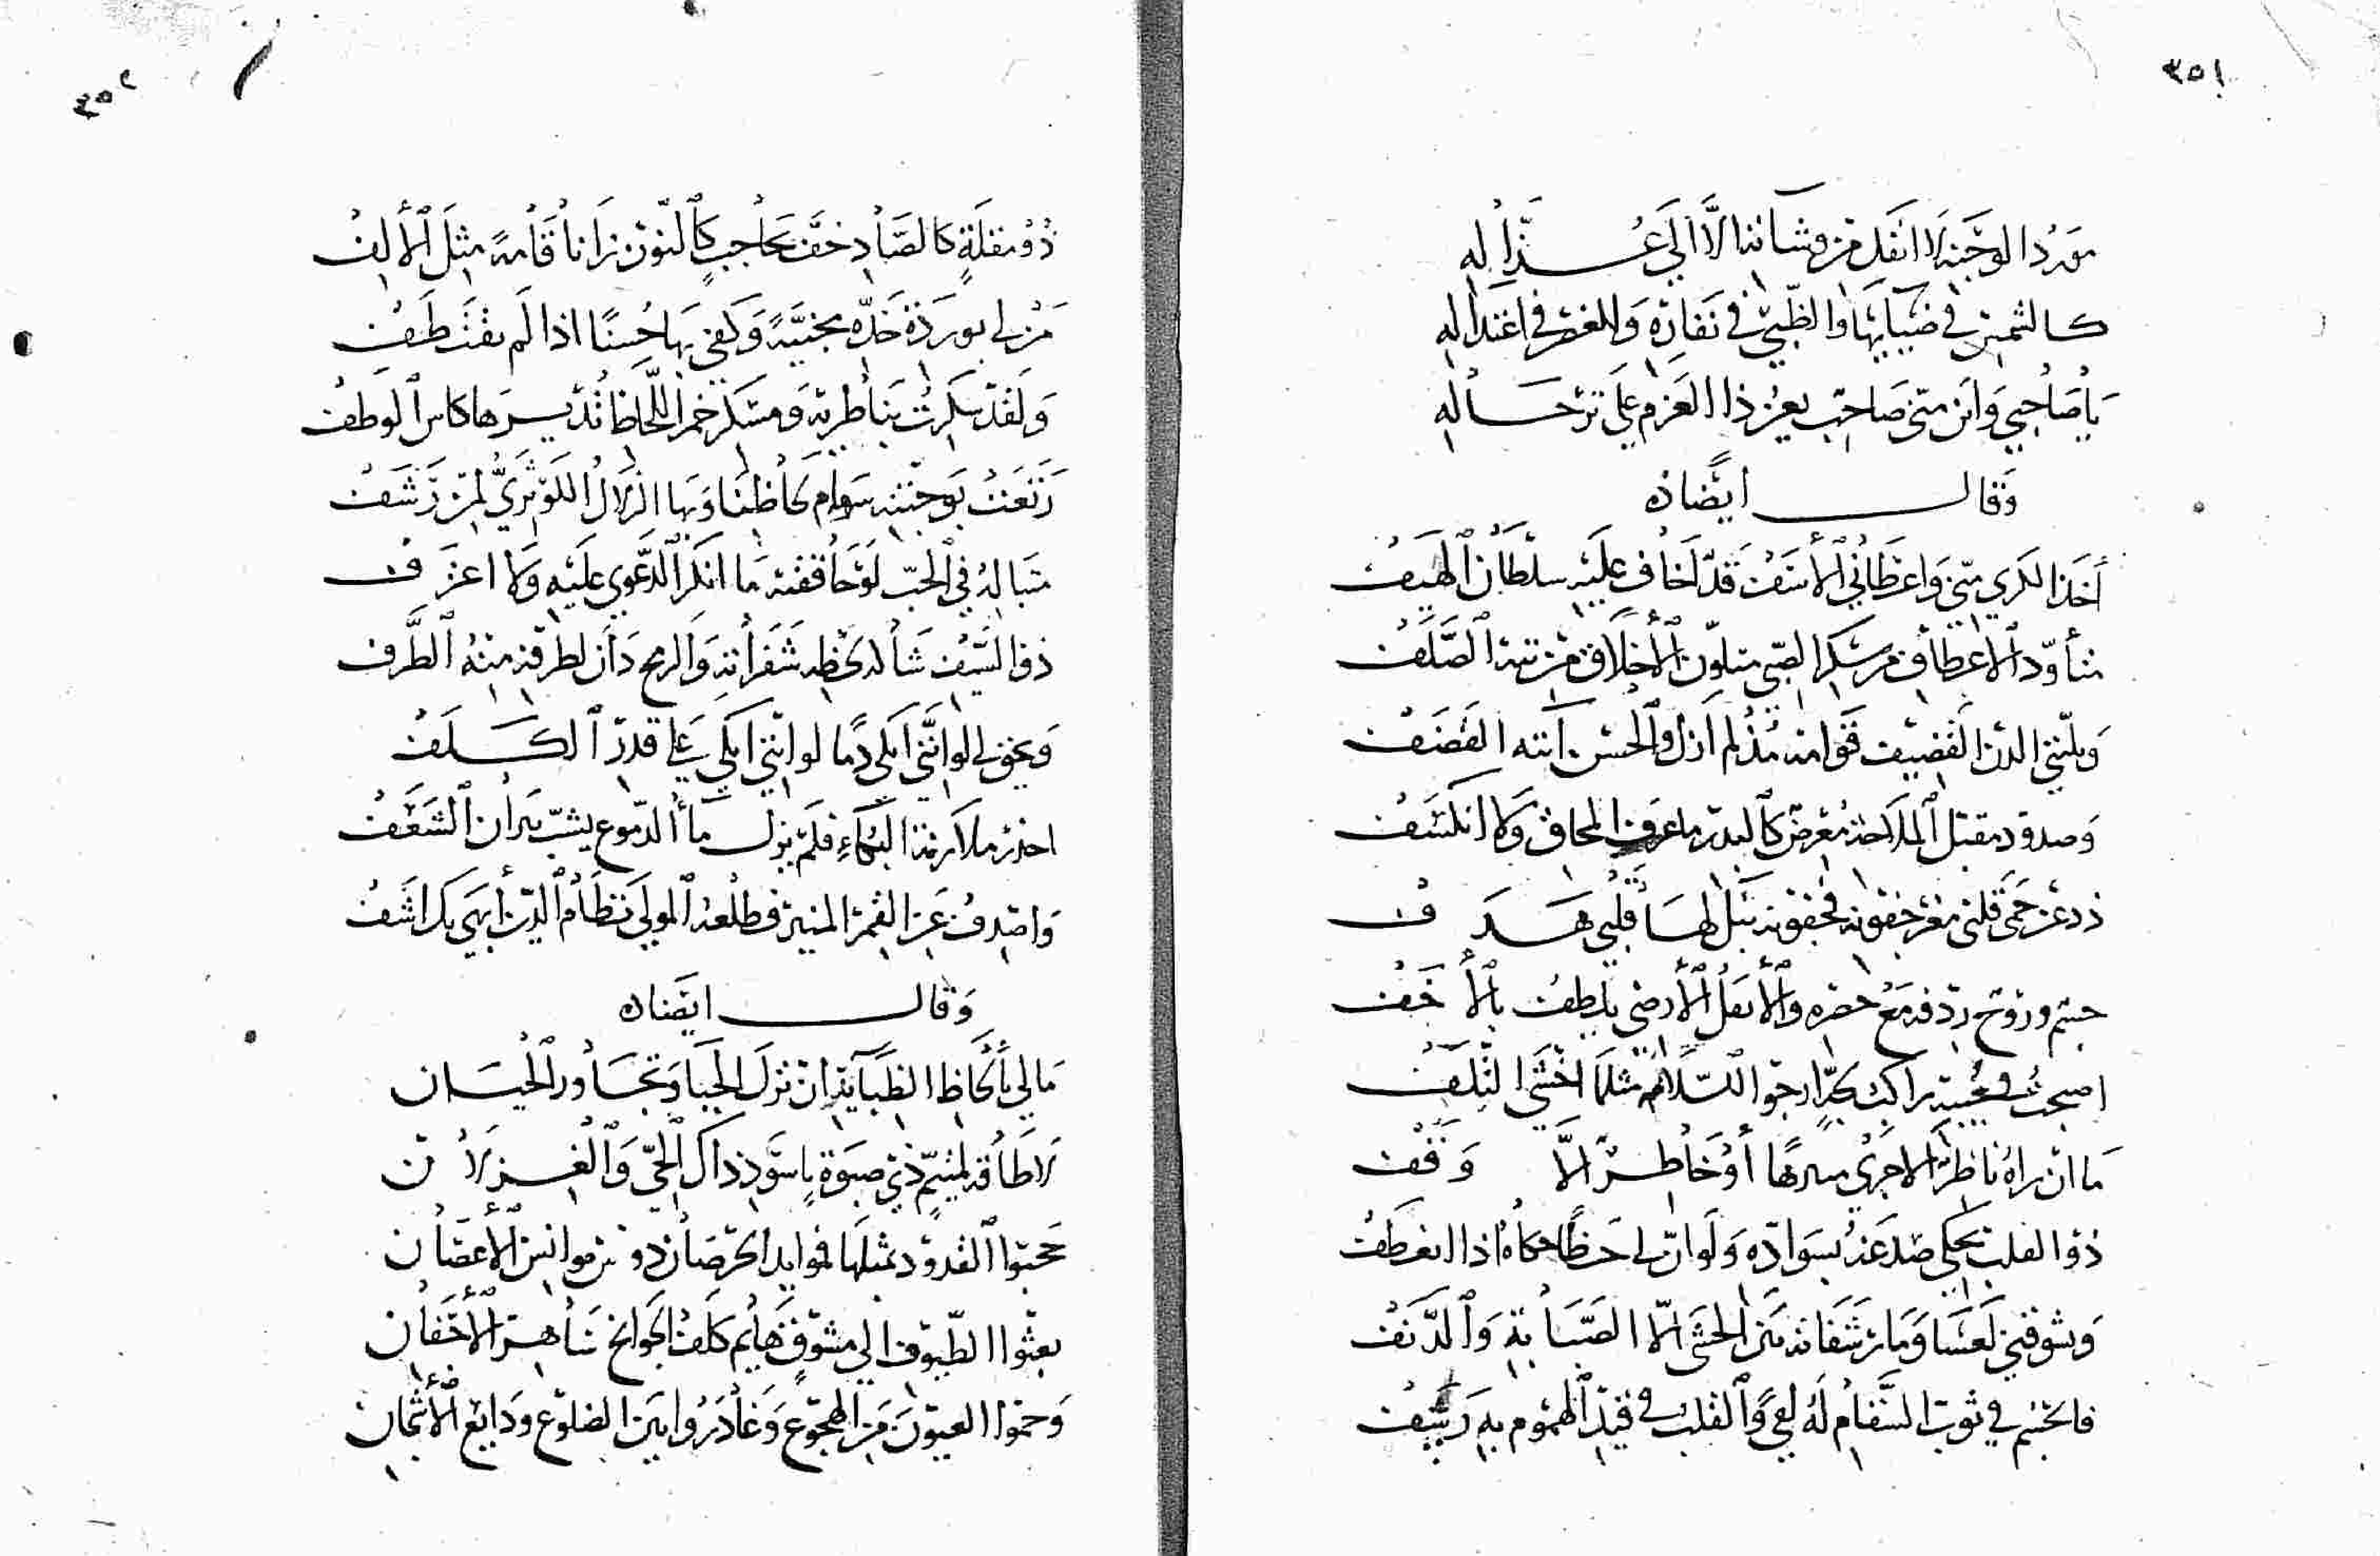 ٣٥١
مورد الوجنة لا انقل من وشاته الا الى عذاله
كالشمس في ضيائها والظبي في نفاره والغصن في اعتداله
يا صاحبي واين مني صاحب يعير ذا العزم على ترحاله
وقال ايضاه
أخذ الكرى مني واعطاني الأسف قد لخاف عليه سلطان الهيف
متأود الاعطاف من سكر الصبى متلون الأخلاق من تيه الصلف
وبليتي اللدن القضيف قوامه مذ لم ازل والحسن آيته القضف
وصدود مقتبل الملاحة معرض كالبدر ما عرف المحاق ولا انكسف
زد عن حمى قلبي جفونه فجفونه نبل لها قلبي هدف
جسم وروح ردفه مع خصره والأثقل الأرضي يلطف بالأخف
اصبحت في حبيه راكب بحر ارجو السلامة مثلما اخشى التلف
ما ان يراه ناظر الا جرى سرها أو خاطر الا وقف
ذو القلب يحكي صدغه بسواده ولو ان لي حظا حكاه اذا انعطف
ويشوقني لعسا وما رشفاته من الحشى الا الصبابة والدنف
فالجسم في ثوب السقام له لقى والقلب في قيد الهموم به رسف
٣٥٢
ذو مقلة كالصاد خف بحاجب كالنون زانا قامة مثل الألف
من لي بوردة خده مجنية وكفى بها حسنا اذا لم تقتطف
ولقد سكرت بناظريه ومسكر خمر اللحاظ تديرها كاس الوطف
رتعت بوجنته سوام لحاظنا وبها الزلال الكوثري لمن رشف
ما باله في الحب لو حاققته ما انكر الدعوى عليه ولا اعترف
ذو السيف شاله لحظه شفراته والرمح دان لطرفه منه الطرف
ويحق لي لو انني ابكي دما لو انني ابكي على قدر الكلف
احذر ملازمة البكاء فلم يزل ماأ الدموع يشب نيران الشغف
واصدف عن القمر المنير فطلعة المولى نظام الدين أبهى بل اشف
وقال ايضاه
مالي بألحاظ الظبآء يدان نزل الحيا وتجاور الحيان
لا طاقة لمتيم ذي صبوة باسود ذاك الحي والغزلان
حجبوا القدود بمثلها فموايد الخرصان دون موانس الأغصان
بعثوا الطيوف الى مشوق هايم كلف الجوانح ساهر الأجفان
وحموا العيون من الهجوع وغادروا بين الضلوع ودايع الأشجان